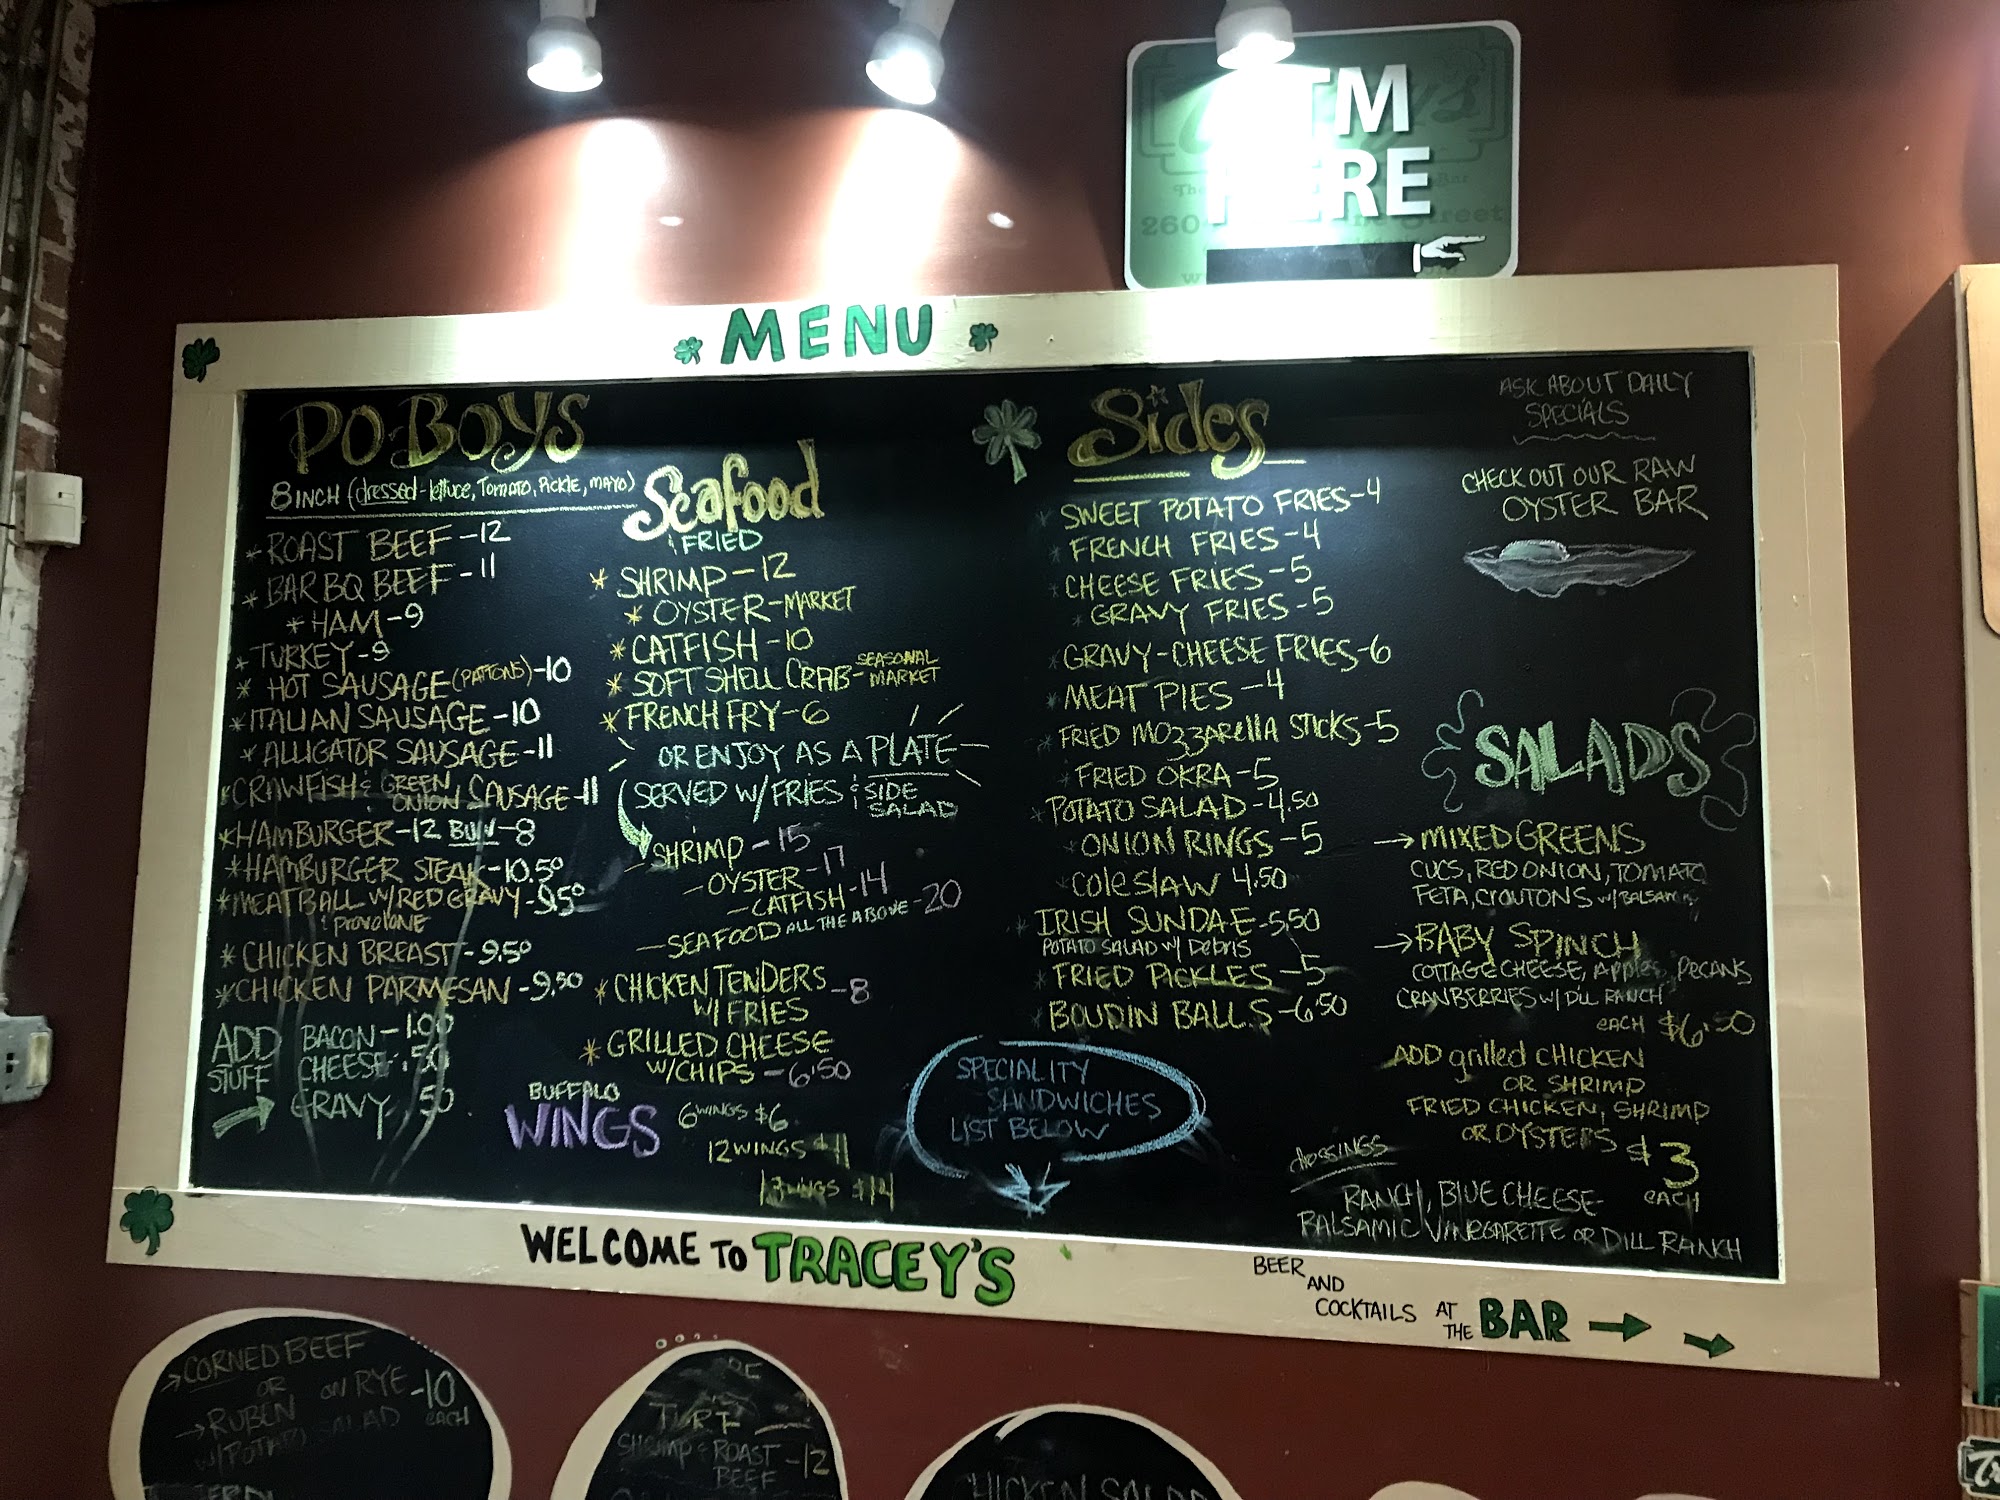 ATM
HERE
260
MENU
PO-BOYS
8 INCH (dressed-lettuce, TOMATO, PICKLE, MAYO)
* ROAST BEEF -12
* BAR BQ BEEF -11
* HAM -9
* TURKEY -9
* HOT SAUSAGE (PATTONS) -10
* ITALIAN SAUSAGE -10
* ALLIGATOR SAUSAGE -11
* CRAWFISH & GREEN ONION SAUSAGE -11
* HAMBURGER -12 BUN -8
* HAMBURGER STEAK -10.50
* MEATBALL W/ RED GRAVY -9.50
& provolone
* CHICKEN BREAST -9.50
* CHICKEN PARMESAN -9.50
ADD STUFF
BACON -1.00
CHEESE .50
GRAVY .50
Seafood
FRIED
* SHRIMP -12
* OYSTER -MARKET
* CATFISH -10
* SOFT SHELL CRAB -SEASONAL MARKET
* FRENCH FRY -6
OR ENJOY AS A PLATE
SERVED W/ FRIES & SIDE SALAD
- SHRIMP -15
- OYSTER -17
- CATFISH -14
- SEAFOOD ALL THE ABOVE -20
* CHICKEN TENDERS
W/ FRIES -8
* GRILLED CHEESE
W/CHIPS -6.50
BUFFALO
WINGS
6 WINGS $6
12 WINGS $11
WINGS $14
Sides
* SWEET POTATO FRIES -4
* FRENCH FRIES -4
* CHEESE FRIES -5
* GRAVY FRIES -5
* GRAVY-CHEESE FRIES -6
* MEAT PIES -4
* FRIED MOZZARELLA STICKS -5
* FRIED OKRA -5
* POTATO SALAD -4.50
* ONION RINGS -5
* COLESLAW 4.50
* IRISH SUNDAE -5.50
POTATO SALAD W/ DEBRIS
* FRIED PICKLES -5
* BOUDIN BALLS -6.50
SPECIALITY
SANDWICHES
LIST BELOW
ASK ABOUT DAILY
SPECIALS
CHECK OUT OUR RAW
OYSTER BAR
SALADS
→ MIXED GREENS
CUCS, RED ONION, TOMATO
FETA, CROUTONS W/ BALSAMIC
→ BABY SPINCH
COTTAGE CHEESE, APPles, PECANS
CRANBERRIES W/ DILL RANCH
EACH $6.50
ADD grilled CHICKEN
OR SHRIMP
FRIED CHICKEN, SHRIMP
OR OYSTERS $3
EACH
dressings
RANCH, BLUE CHEESE
BALSAMIC VINEGARETTE OR DILL RANCH
WELCOME TO TRACEY'S
BEER AND COCKTAILS AT THE BAR → →
→ CORNED BEEF
OR ON RYE -10
→ RUBEN EACH
W/ POTATO SALAD
TURF
SHRIMP & ROAST
BEEF -12
CHICKEN SALAD